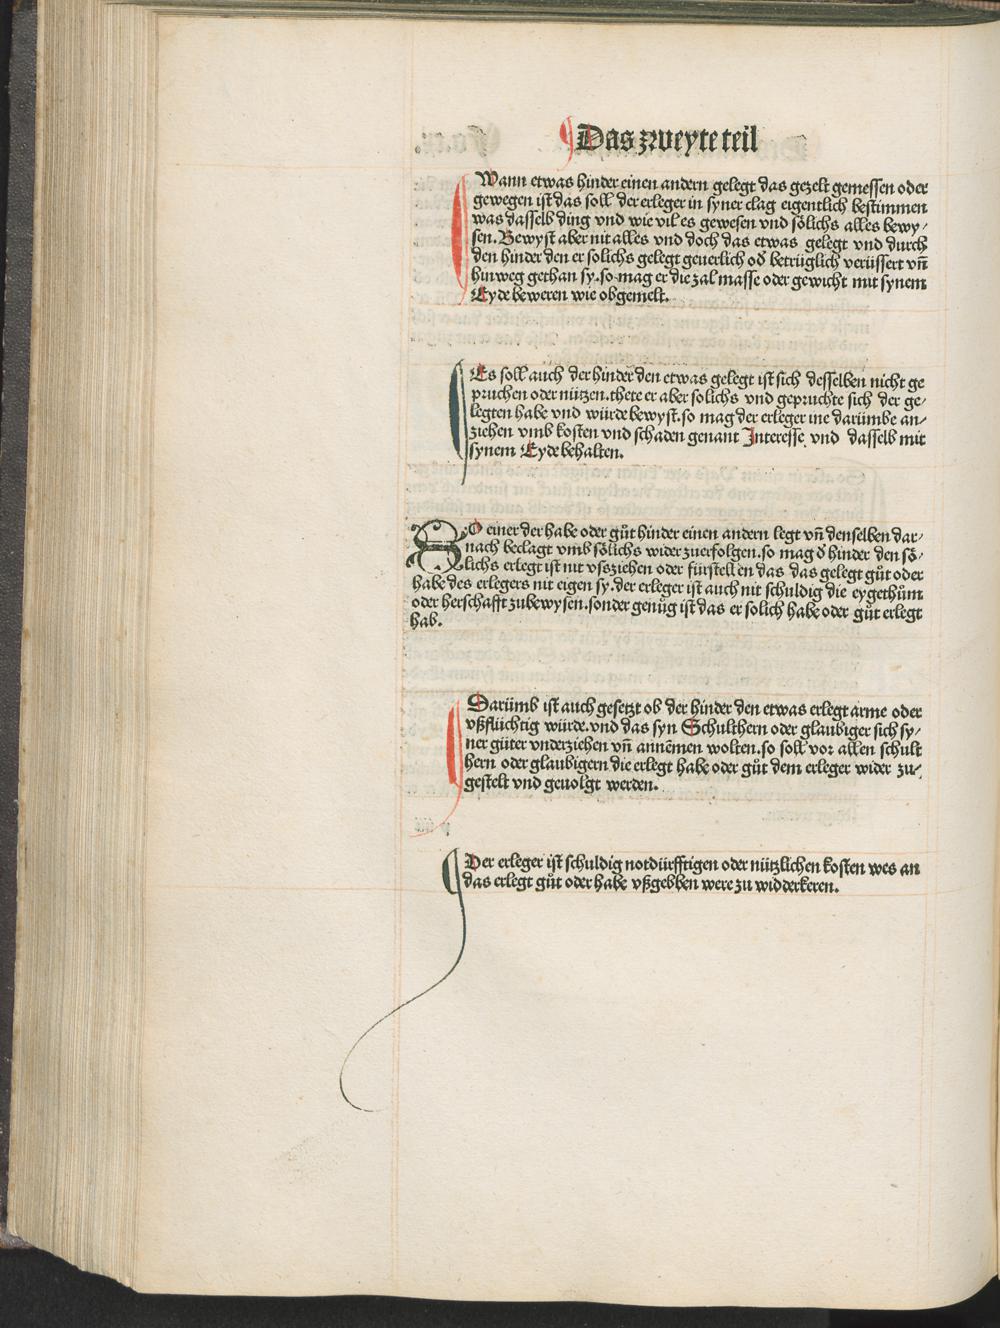 Das zweyte teil
Wann etwas hinder einen andern gelegt das gezelt gemessen oder
gewegen ist das soll der erleger in syner clag eigentlich bestimmen
was dasselb ding vnd wie vil es gewesen vnd sőlichs alles bewy⸗
sen. Bewyst aber nit alles vnd doch das etwas gelegt vnd durch
den hinder den er solichs gelegt geuerlich od̕ betrüglich verüssert vn̄
hinweg gethan sy. so mag er die zal masse oder gewicht mit synem
Eyde beweren wie obgemelt.
Es soll auch der hinder den etwas gelegt ist sich desselben nicht ge
pruchen oder nützen. thete er aber solichs vnd gepruchte sich der ge⸗
legten habe vnd würde bewyst. so mag der erleger ine darümbe an⸗
ziehen vmb kosten vnd schaden genant Interesse vnd dasselb mit
synem Eyde behalten.
SO einer der habe oder gůt hinder einen andern legt vn̄ denselben dar⸗
nach beclagt vmb sőlichs wider zuerfolgen. so mag d̕ hinder den ső⸗
lichs erlegt ist nit vssziehen oder fürstellen das das gelegt gůt oder
habe des erlegers nit eigen sy. der erleger ist auch nit schuldig die eygethům
oder herschafft zubewysen. sonder genůg ist das er solich habe oder gůt erlegt
hab.
Darümb ist auch gesetzt ob der hinder den etwas erlegt arme oder
vßflüchtig würde. vnd das syn Schulthern oder glaubiger sich sy⸗
ner güter vnderziehen vn̄ annēmen wolten. so soll vor allen schult
hern oder glaubigern die erlegt habe oder gůt dem erleger wider zu⸗
gestelt vnd geuolgt werden.
Der erleger ist schuldig notdürfftigen oder nützlichen kosten wes an
das erlegt gůt oder habe vßgebben were zu widderkeren.